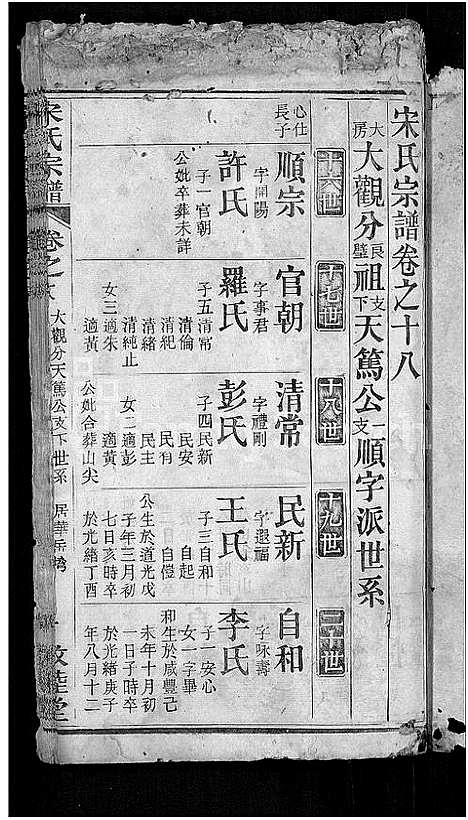 宋氏宗譜卷之十八
大房大觀分良璧祖支下天篤公一支順字派世系
十六世
十七世
十八世
十九世
二十世
心仕長子
順宗
字開陽
許氏
子一官朝
公妣卒葬未詳
官朝
字事君
羅氏
子五清常
清倫
清紀
清緒
清純止
女三適朱
適黃
清常
字禮剛
彭氏
子四民新
民安
民有
民主
女二適彭
適黃
公妣合葬山尖
民新
字遐福
王氏
子三自和
自起
自愷
公生於道光戊
子年三月初
七日亥時卒
於光緒丁酉
自和
字咏壽
李氏
子一安心
女一字畢
和生於咸豐己
未年十月初
一日子時卒
於光緒庚子
年八月十二
宋氏宗譜
卷之
大觀分天篤公支下世系
敦睦堂